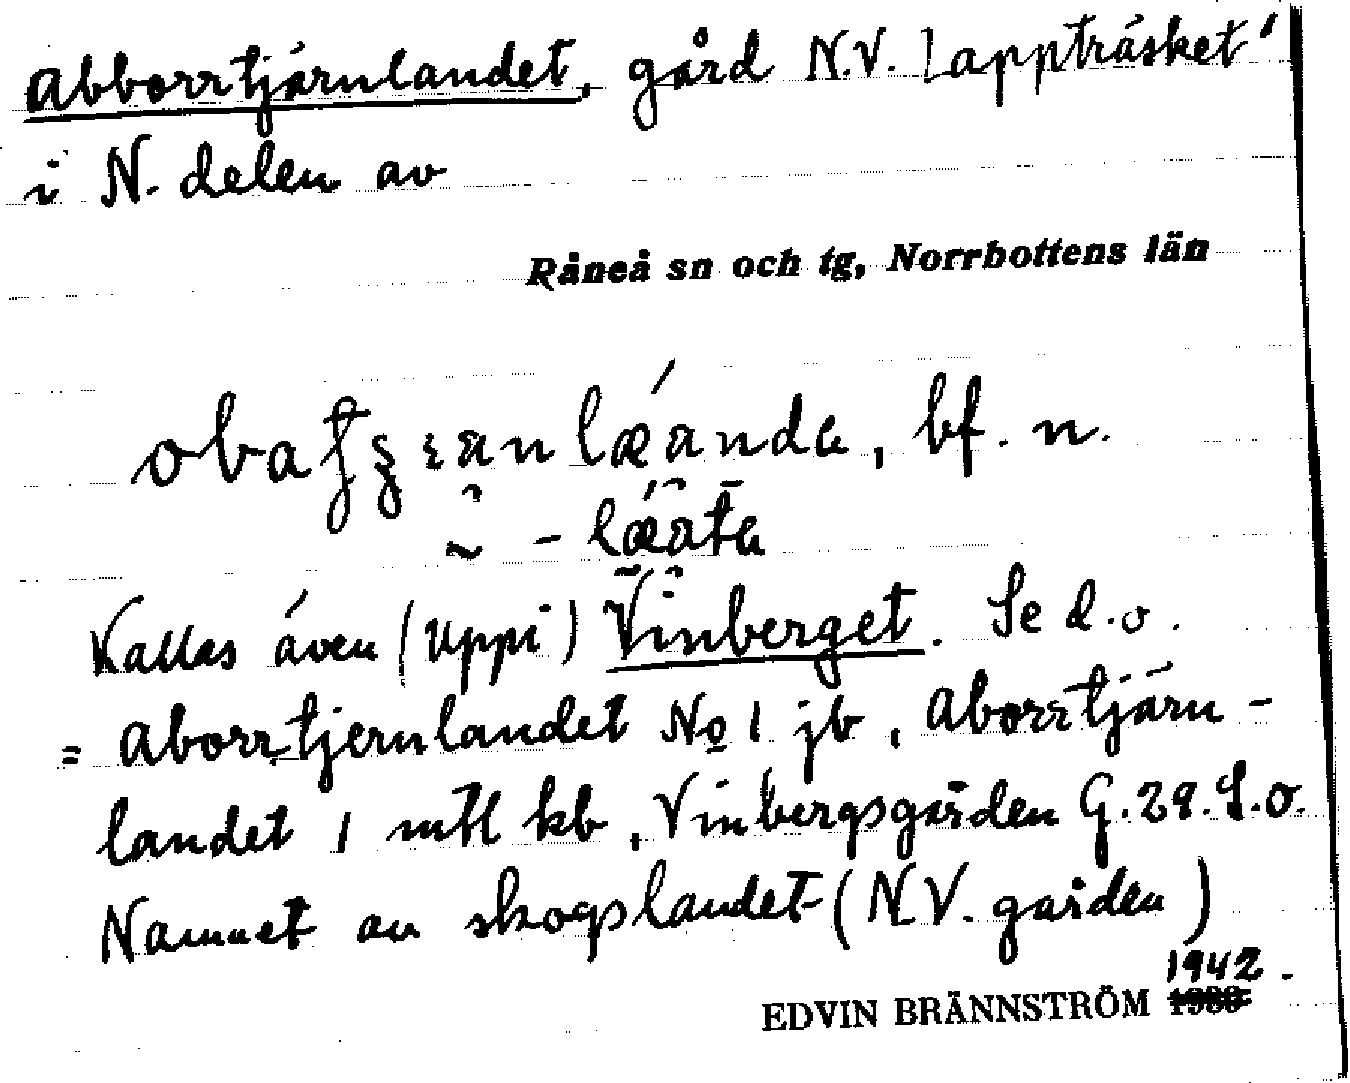 Abborrtjärnlandet, gård N.V. Lappträsket
i N. delen av
Råneå sn och tg, Norrbottens län
bf. n.
Kallas även (uppi) Vinberget. Se d.o.
= Aborrtjernlandet No 1 jb, Aborrtjärn-
landet 1 mtl kb, Vinbergsgården G. 29. S.o.
Namnet av skogslandet (N.V. gården)
EDVIN BRÄNNSTRÖM 1942.